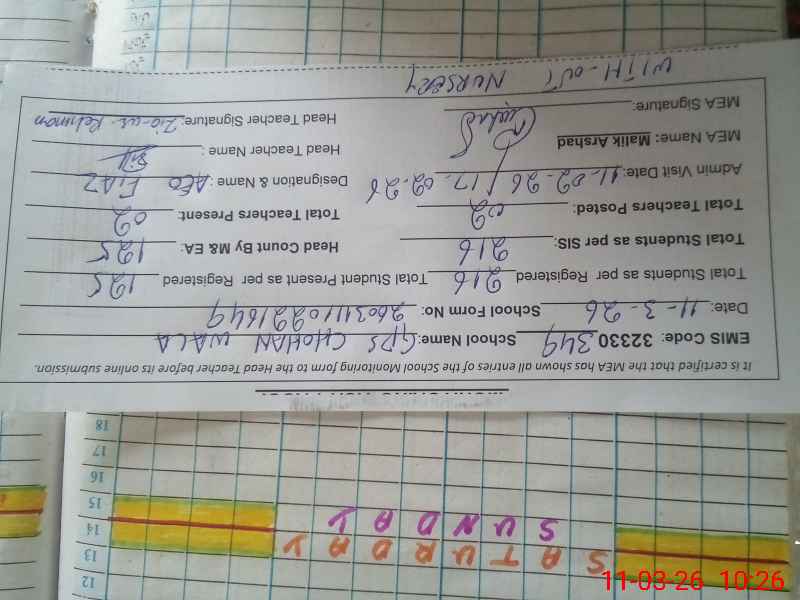 It is certified that the MEA has shown all entries of the School Monitoring form to the Head Teacher before its online submission.
EMIS Code: 32330 349 School Name: GPS CHOHAN WALA
Date: 11-3-26 School Form No: 26031110221649
Total Students as per Registered 216 Total Student Present as per Registered 125
Total Students as per SIS: 216 Head Count By M& EA: 125
Total Teachers Posted: 02 Total Teachers Present: 02
Admin Visit Date: 11-02-26 / 17-02-26 Designation & Name: AEO FIAZ
MEA Name: Malik Arshad Head Teacher Name :
MEA Signature: Head Teacher Signature: Zia-ur-Rehman
WITH-OUT NURSERY
12
13
14
15
16
17
18
SATURDAY
SUNDAY
11-03-26 10:26